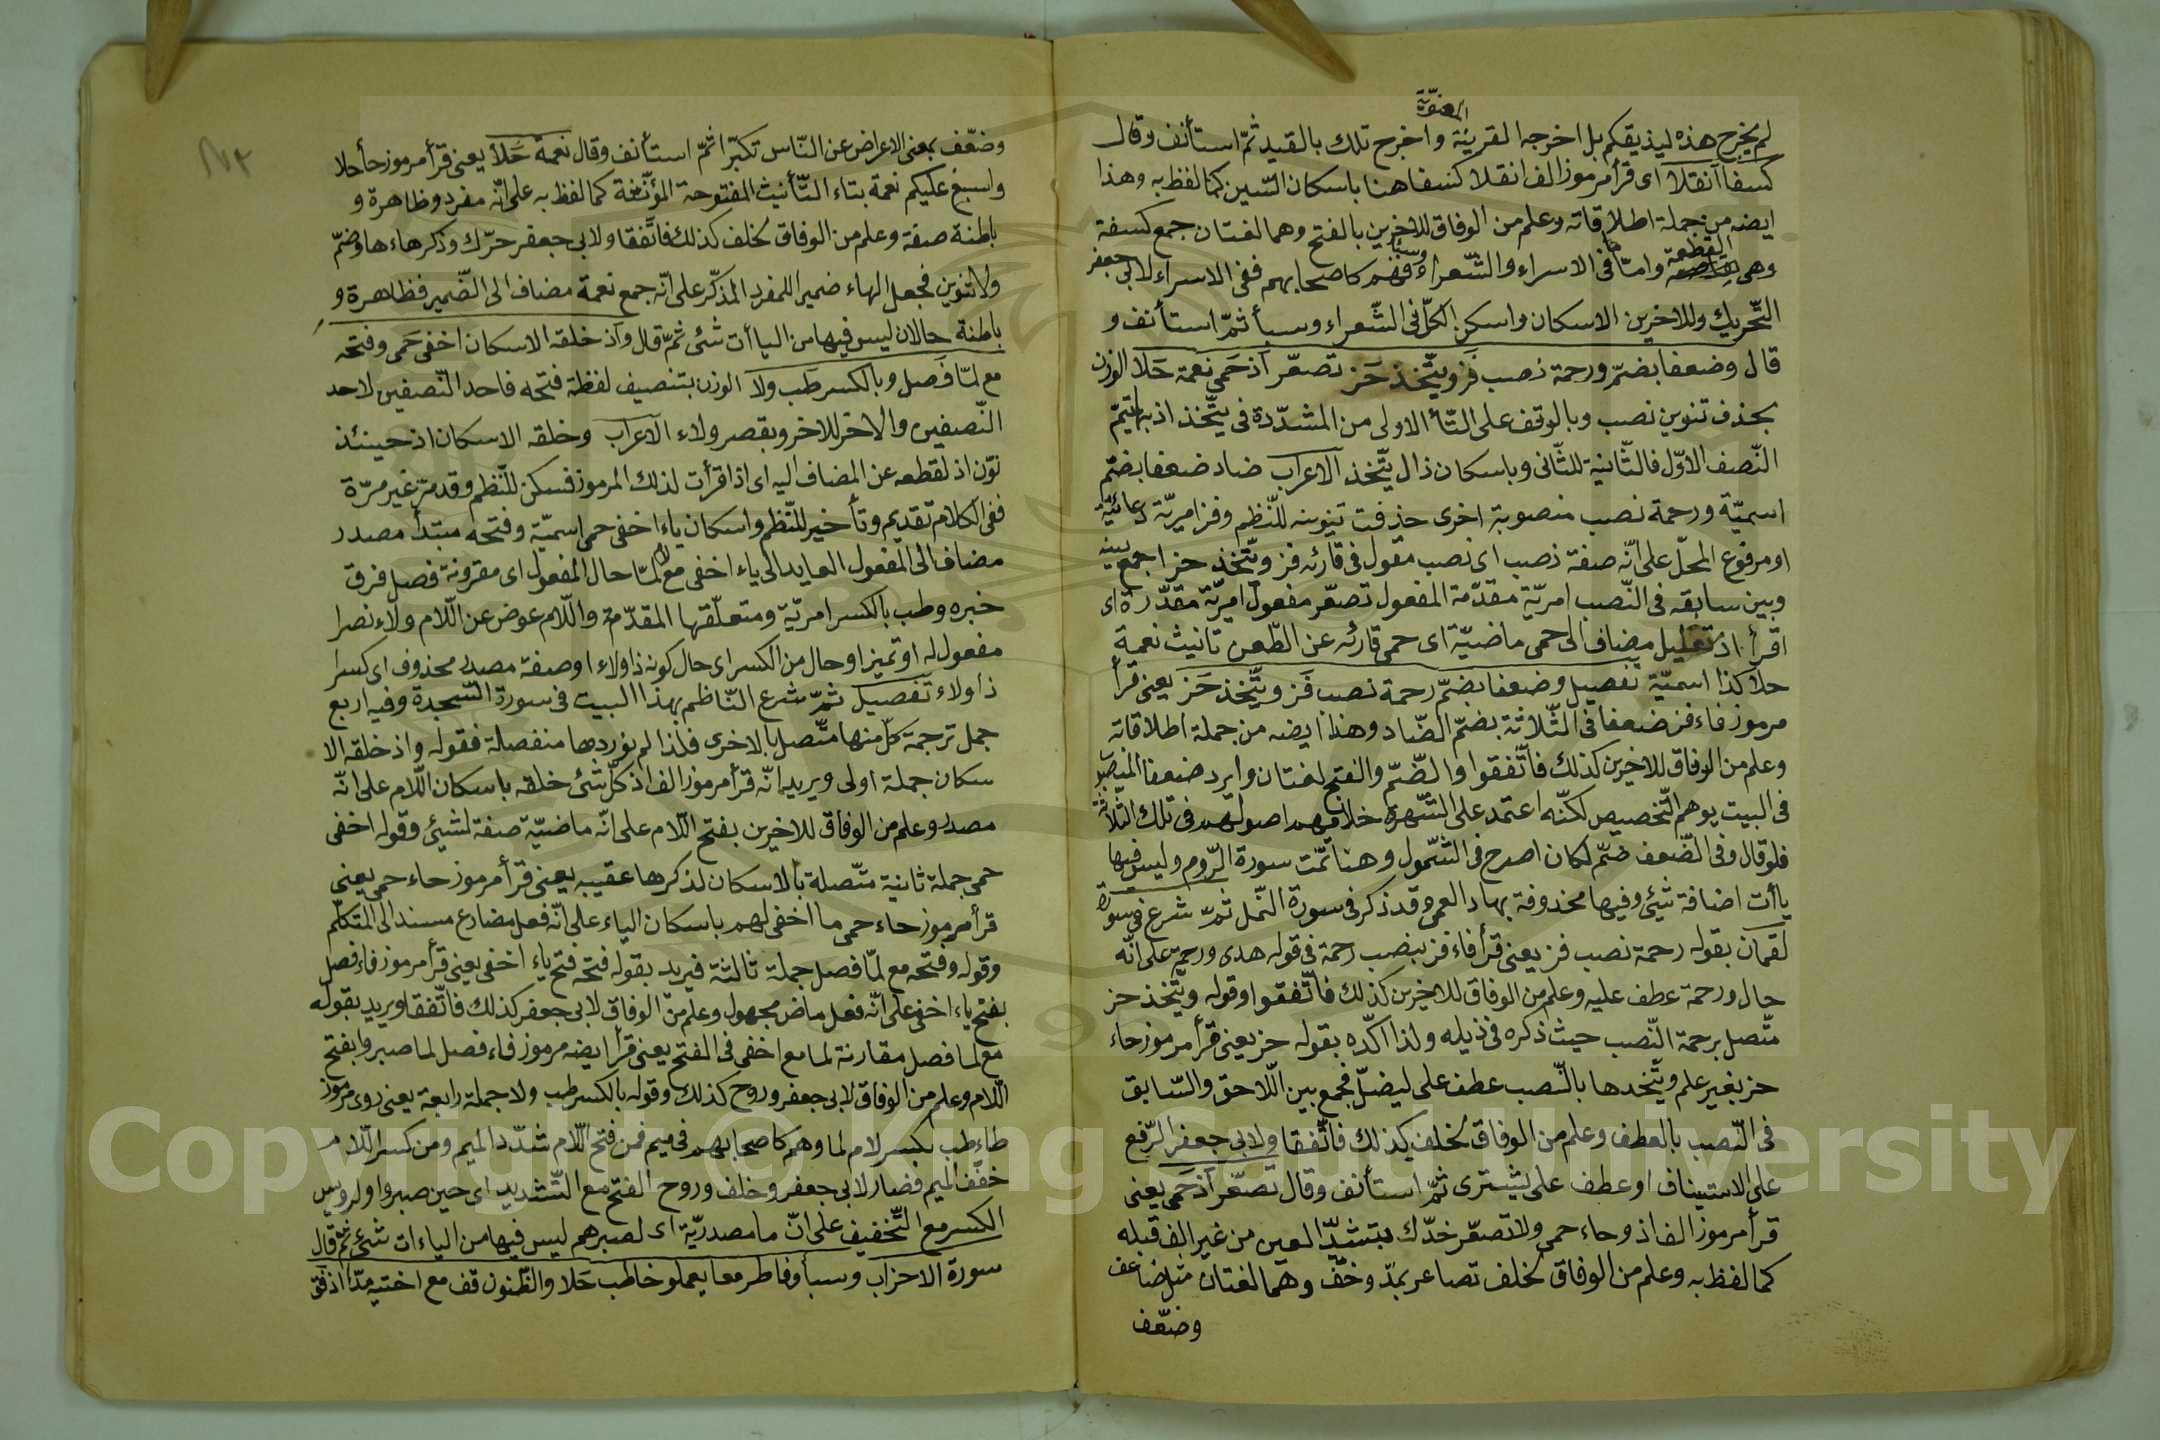 المعنويّة
لم يخرج هذه ليذيقكم بل اخرجه القرينة واخرج تلك بالقيد ثمّ استأنف وقال
كسفا آنقلا آى قرأ مرموز الف انقلا كسفا هنا باسكان السّين كما لفظ به وهذا
ايضه من جملة اطلاقاته وعلم من الوفاق للاخرين بالفتح وهما لغتان جمع كسفة
وهى القطعة وامّا ما فى الاسراء والشّعراء وسبأ فهم كاصحابهم ففى الاسراء لابى جعفر
التّحريك وللاخرين الاسكان واسكن الكلّ فى الشّعراء وسبأ ثمّ استأنف و
قال وضعفا بضمّ ورحمة نصب فز ويتّخذ حز تصعّر آذ حمى نعمة حلا الوزن
بحذف تنوين نصب وبالوقف على التّأ الاولى من المشدّدة فى يتّخذ اذ بها يتمّ
النّصف الاوّل فالثّانية للثّانى وباسكان ذال يتّخذ الآعراب ضاد ضعفا بضمّ
اسميّة ورحمة نصب منصوبة اخرى حذفت تنوينه للنّظم وفز امريّة دعائيّة
او مرفوع المحلّ على انّه صفة نصب اى نصب مقول فى قارئه فز ويتّخذ حز اجمع بينه
وبين سابقه فى النّصب امريّة مقدّمة المفعول تصعّر مفعول امريّة مقدّرة اى
اقرأ اذ تعليل مضاف الى حمى ماضيّة اى حمى قارئه عن الطّعن تانيث نعمة
حلا كذا اسميّة تفصيل وضعفا بضمّ رحمة نصب فز ويتّخذ حز يعنى قرأ
مرموز فاء فز ضعفا فى الثّلاثة بضمّ الضّاد وهذا ايضه من جملة اطلاقاته
وعلم من الوفاق للاخرين كذلك فاتّفقوا والضّمّ والفتح لغتان وايرد ضعفا المنصوب
فى البيت يوهم التّخصيص لكنّه اعتمد على الشّهرة خلافهم اصولهم فى تلك الثّلاثة
فلو قال وفى الضّعف ضمّ لكان اصرح فى الشّمول وهنا تمّت سورة الرّوم وليس فيها
ياأت اضافة شيئ وفيها محذوفة بهاد العمى وقد ذكر فى سورة النّمل ثمّ شرع فى سورة
لقمان بقوله رحمة نصب فز يعنى قرأ فاء فز بنصب رحمة فى قوله هدى ورحمة على انّه
حال ورحمة عطف عليه وعلم من الوفاق للاخرين كذلك فاتّفقوا وقوله ويتّخذ حز
متّصل برحمة النّصب حيث ذكره فى ذيله ولذا اكّده بقوله حز يعنى قرأ مرموز حاء
حز بغير علم ويتّخذها بالنّصب عطف على ليضلّ فجمع بين اللّاحق والسّابق
فى النّصب بالعطف وعلم من الوفاق لخلف كذلك فاتّفقا ولابى جعفر الرّفع
على الاستيناف او عطف على يشترى ثمّ استأنف وقال تصعّر آذ حمى يعنى
قرأ مرموز الف اذ وحاء حمى ولا تصعّر خدّك بتشديد العين من غير الف قبله
كما لفظ به وعلم من الوفاق لخلف تصاعر بمدّ وخفّ وهما لغتان مثل ضاعف
وضعّف
وضعّف بمعنى الاعراض عن النّاس تكبّرا ثمّ استأنف وقال نعمة حلا يعنى قرأ مرموز حأ حلا
واسبغ عليكم نعمة بتاء التّأنيث المفتوحة المؤنّثة كما لفظ به على انّه مفرد وظاهرة و
باطنة صفة وعلم من الوفاق لخلف كذلك فاتّفقا ولابى جعفر حرّك وذكر هاءها وضمّ
ولا تنوين فجعل الهاء ضميرا للمفرد المذكّر على انّه جمع نعمة مضاف الى الضّمير فظاهرة و
باطنة حالان ليس فيها من الياأت شئ ثمّ قال وآذ خلقه الاسكان اخفى حمى وفتحه
مع لمّا فصل وبالكسر طب ولا الوزن بتنصيف لفظة فتحه فاحد النّصفين لاحد
النّصفين والاخر للاخر وبقصر ولاء الآعراب وخلقه الاسكان اذ حينئذ
نوّن اذ لقطعه عن المضاف اليه اى اذا قرأت لذلك المرموز فسكن للنّظم وقد مرّ غير مرّة
ففى الكلام تقديم وتأخير للنّظم واسكان ياء اخفى حمى اسميّة وفتحه مبتدأ مصدر
مضاف الى المفعول العايد الى ياء اخفى مع لام لمّا حال المفعول اى مقرونة فصل فرق
خبره وطب بالكسر امريّة ومتعلّقها المقدّمة واللّام عوض عن اللّام ولاء نصرا
مفعول له او تميز او حال من الكسر اى حال كونه ذا ولاء او صفة مصدر محذوف اى كسرا
ذا ولاء تفصيل ثمّ شرع النّاظم بهذا البيت فى سورة السّجدة وفيه اربع
جمل ترجمة كلّ منها متّصل بالاخرى فلذا لم نوردها منفصلة فقوله واذ خلقه الا
سكان جملة اولى ويريد انّه قرأ مرموز الف اذ كلّ شئ خلقه باسكان اللّام على انّه
مصدر وعلم من الوفاق للاخرين بفتح اللّام على انّه ماضيّة صفة لشيئ وقوله اخفى
حمى جملة ثانية متّصلة بالاسكان لذكرها عقيبه يعنى قرأ مرموز حاء حمى يعنى
قرأ مرموز حاء حمى ما اخفى لهم باسكان الياء على انّه فعل مضارع مسند الى المتكلّم
وقوله وفتحه مع لمّا فصل جملة ثالثة فيريد بقوله فتحه فتح ياء اخفى يعنى قرأ مرموز فاء فصل
بفتح ياء اخفى على انّه فعل ماض مجهول وعلم من الوفاق لابى جعفر كذلك فاتّفقا ويريد بقوله
مع لما فصل مقارنة لما مع اخفى فى الفتح يعنى قرأ ايضه مرموز فاء فصل لما صبروا بفتح
اللّام وعلم من الوفاق لابى جعفر وروح كذلك وقوله بالكسر طب ولا جملة رابعة يعنى روى مرموز
طاء طب بكسر لام لما وهم كاصحابهم فى ميم فمن فتح اللّام شدّد الميم ومن كسر اللّام
خفّف الميم فصار لابى جعفر وخلف وروح الفتح مع التّشديد اى حين صبروا ولرويس
الكسر مع التّخفيف على انّ ما مصدريّة اى لصبرهم ليس فيها من الياءات شئ ثمّ قال
سورة الاحزاب وسبأ وفاطر معا يعملو خاطب حلا والظّنون قف مع اختيه مدّا اذ فق
Copyright © King Saud University